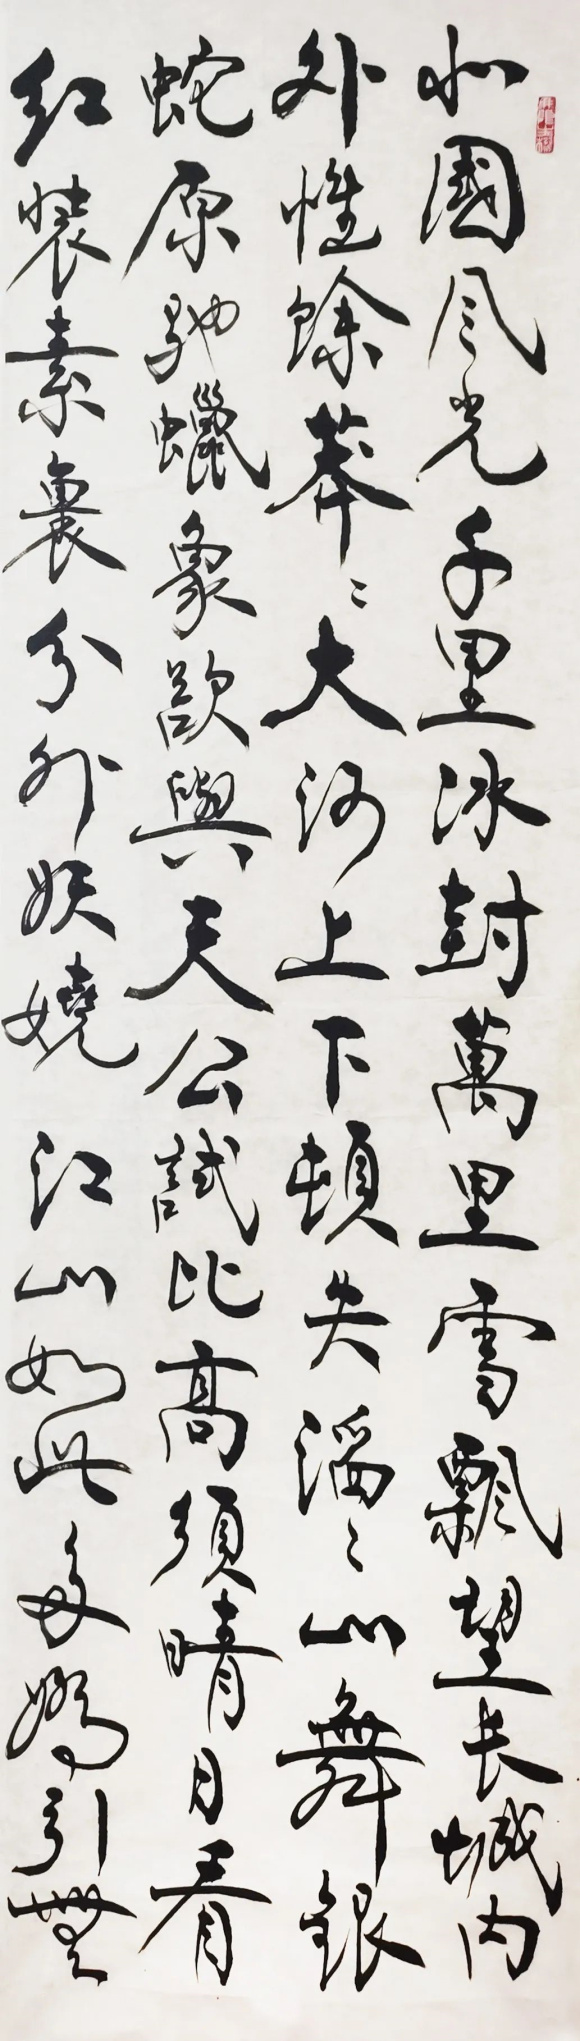 北國风光千里冰封萬里雪飄望长城内
外惟餘莽々大河上下頓失滔々山舞銀
蛇原馳蠟象欲與天公試比高須晴日看
红裝素裹分外妖嬈江山如此多嬌引無